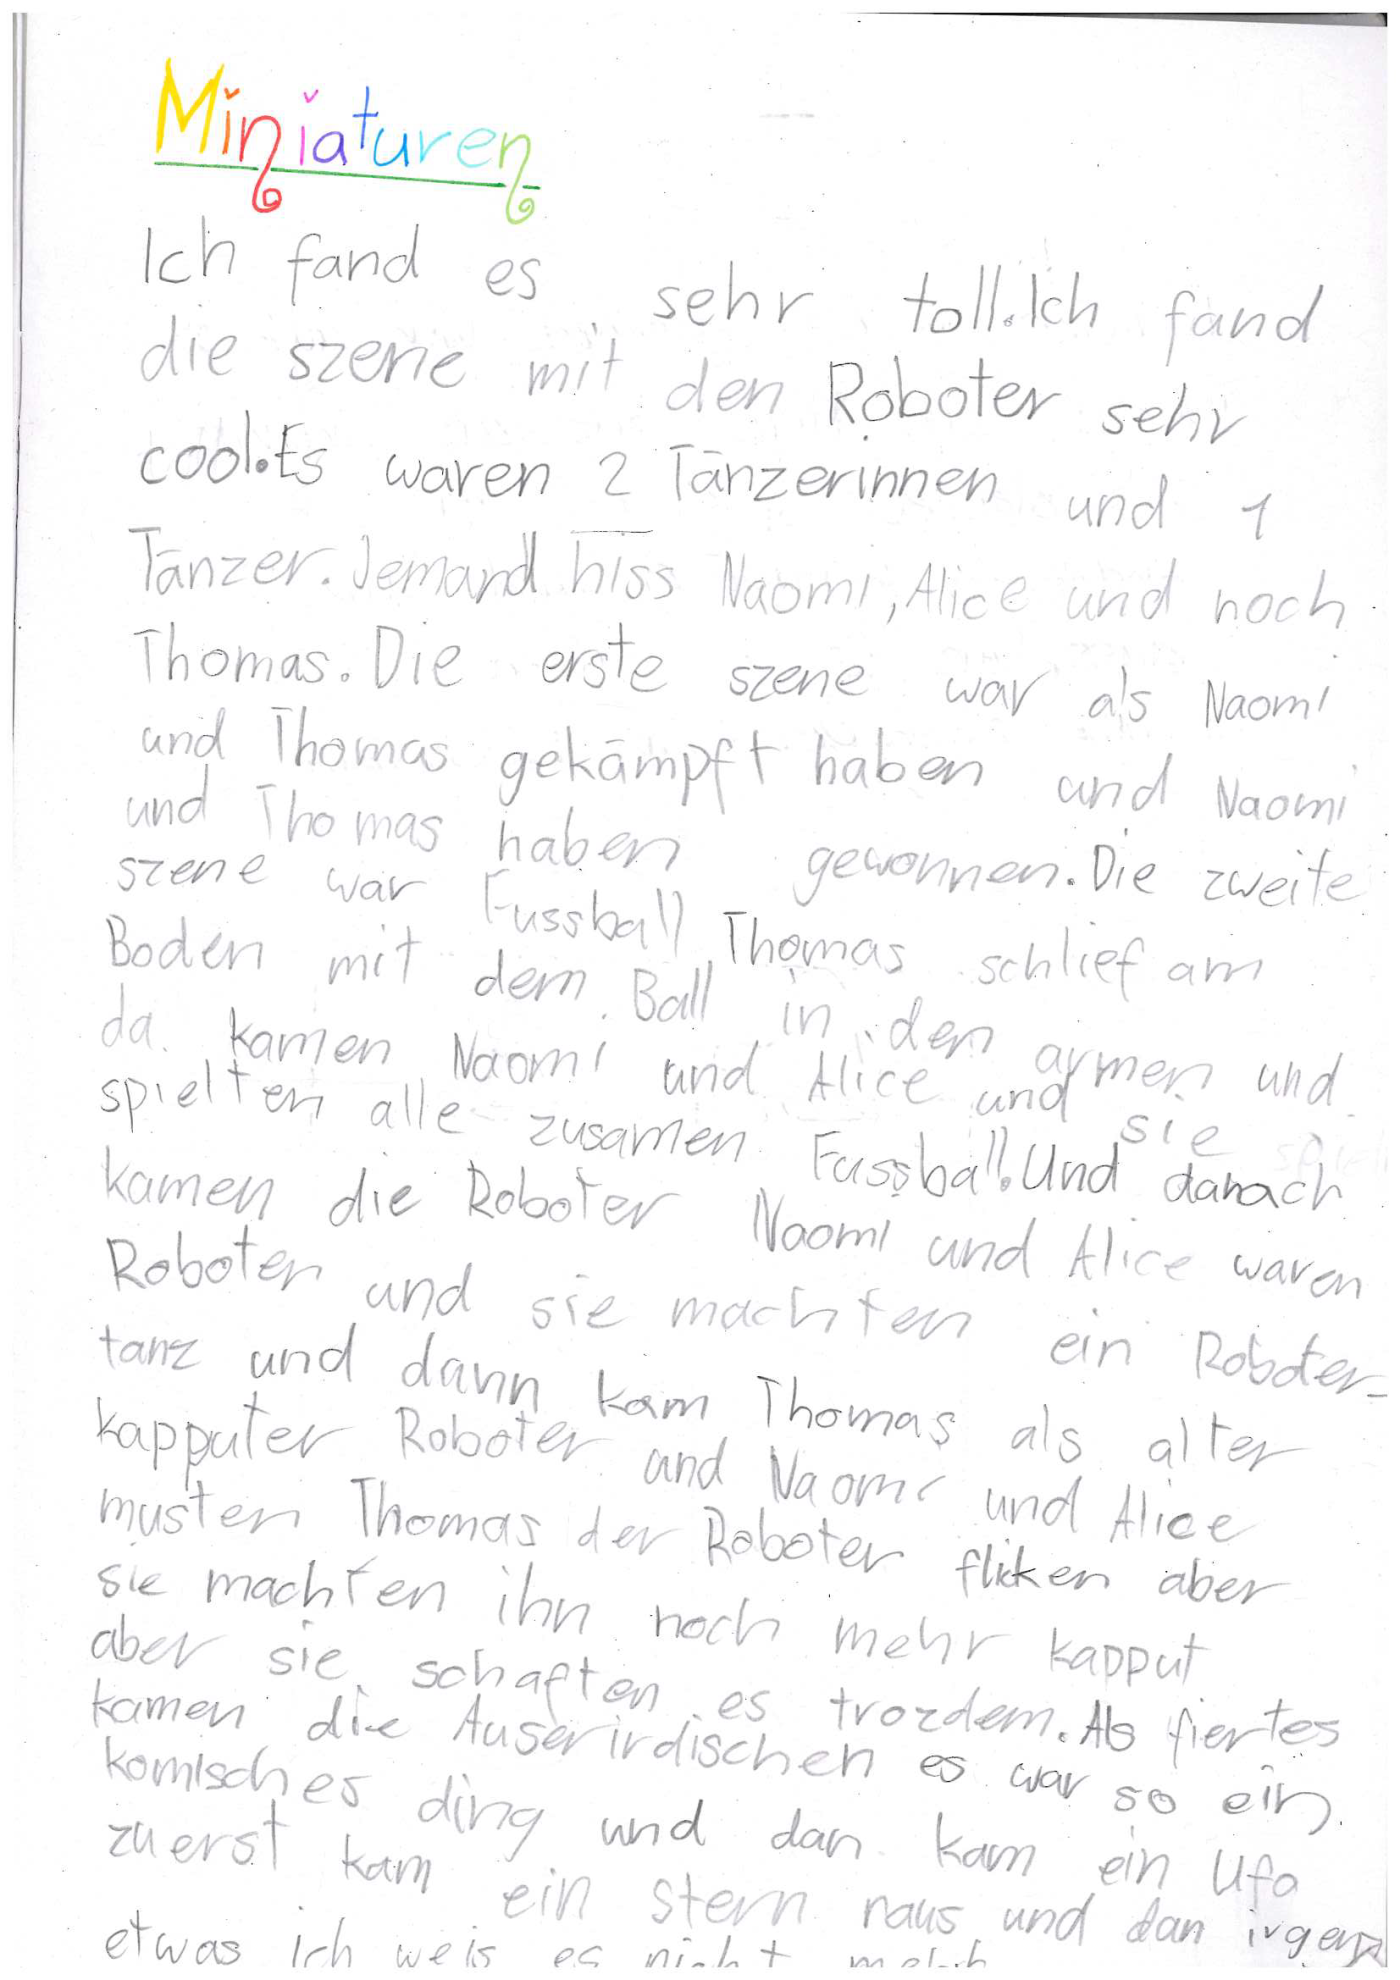 Miniaturen
Ich fand es sehr toll. Ich fand
die szene mit den Roboter sehr
cool. Es waren 2 Tänzerinnen und 1
Tänzer. Jemand hiss Naomi, Alice und noch
Thomas. Die erste szene war als Naomi
und Thomas gekämpft haben und Naomi
und Thomas haben gewonnen. Die zweite
szene war Fussball Thomas schlief am
Boden mit dem Ball in den armen und
da kamen Naomi und Alice und sie
spielten alle zusamen Fussball. Und danach
kamen die Roboter Naomi und Alice waren
Roboter und sie machten ein Roboter-
tanz und dann kam Thomas als alter
kapputer Roboter und Naomi und Alice
musten Thomas der Roboter fliken aber
sie machten ihn noch mehr kapput
aber sie schaften es trozdem. Als fiertes
kamen die Auserirdischen es war so ein
komisches ding und dan kam ein Ufo
zuerst kam ein stern raus und dan irgend
etwas ich weis es nicht